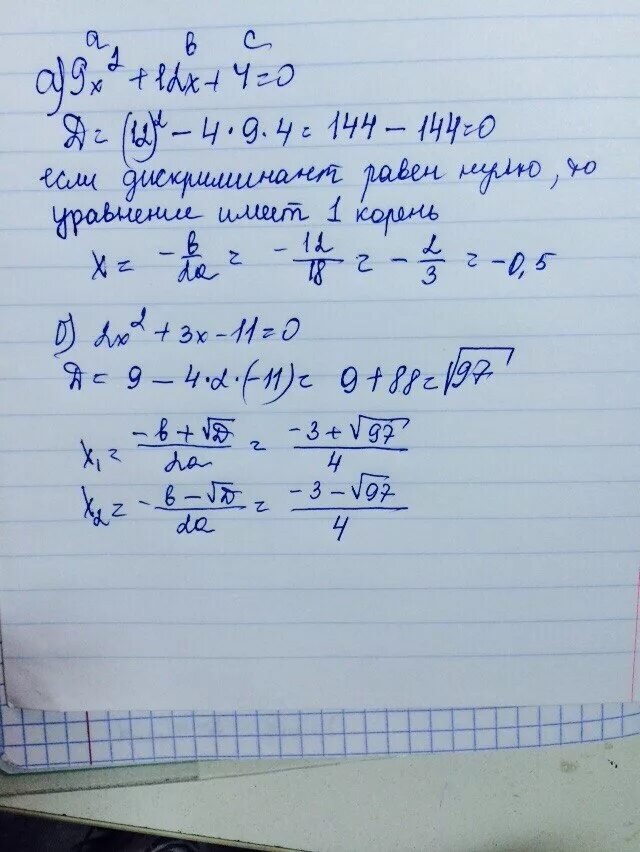 a в c
а) 9x² + 12x + 4 = 0
Д = (12)² − 4 · 9 · 4 = 144 − 144 = 0
если дискриминант равен нулю, то
уравнение имеет 1 корень
x = -в/2a = -12/18 = -2/3 = -0,5
б) 2x² + 3x − 11 = 0
Д = 9 − 4 · 2 · (−11) = 9 + 88 = √97
x₁ = -в + √Д/2a = -3 + √97/4
x₂ = -в − √Д/2a = -3 − √97/4